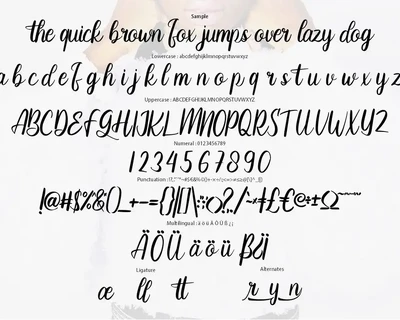 Sample
the quick brown fox jumps over lazy dog
Lowercase : abcdefghijklmnopqrstuvwxyz
abcdefghijklmnopqrstuvwxyz
Uppercase : ABCDEFGHIJKLMNOPQRSTUVWXYZ
ABCDEFGHIJKLMNOPQRSTUVWXYZ
Numeral : 0123456789
1234567890
Punctuation :
!@#$%&()_+-={}|[]\:;<>?,./~
Multilingual : ä ö ü Ä Ö Ü ß ¿¡
ÄÖÜ äöü
Ligature Alternates
æ ll tt r y n